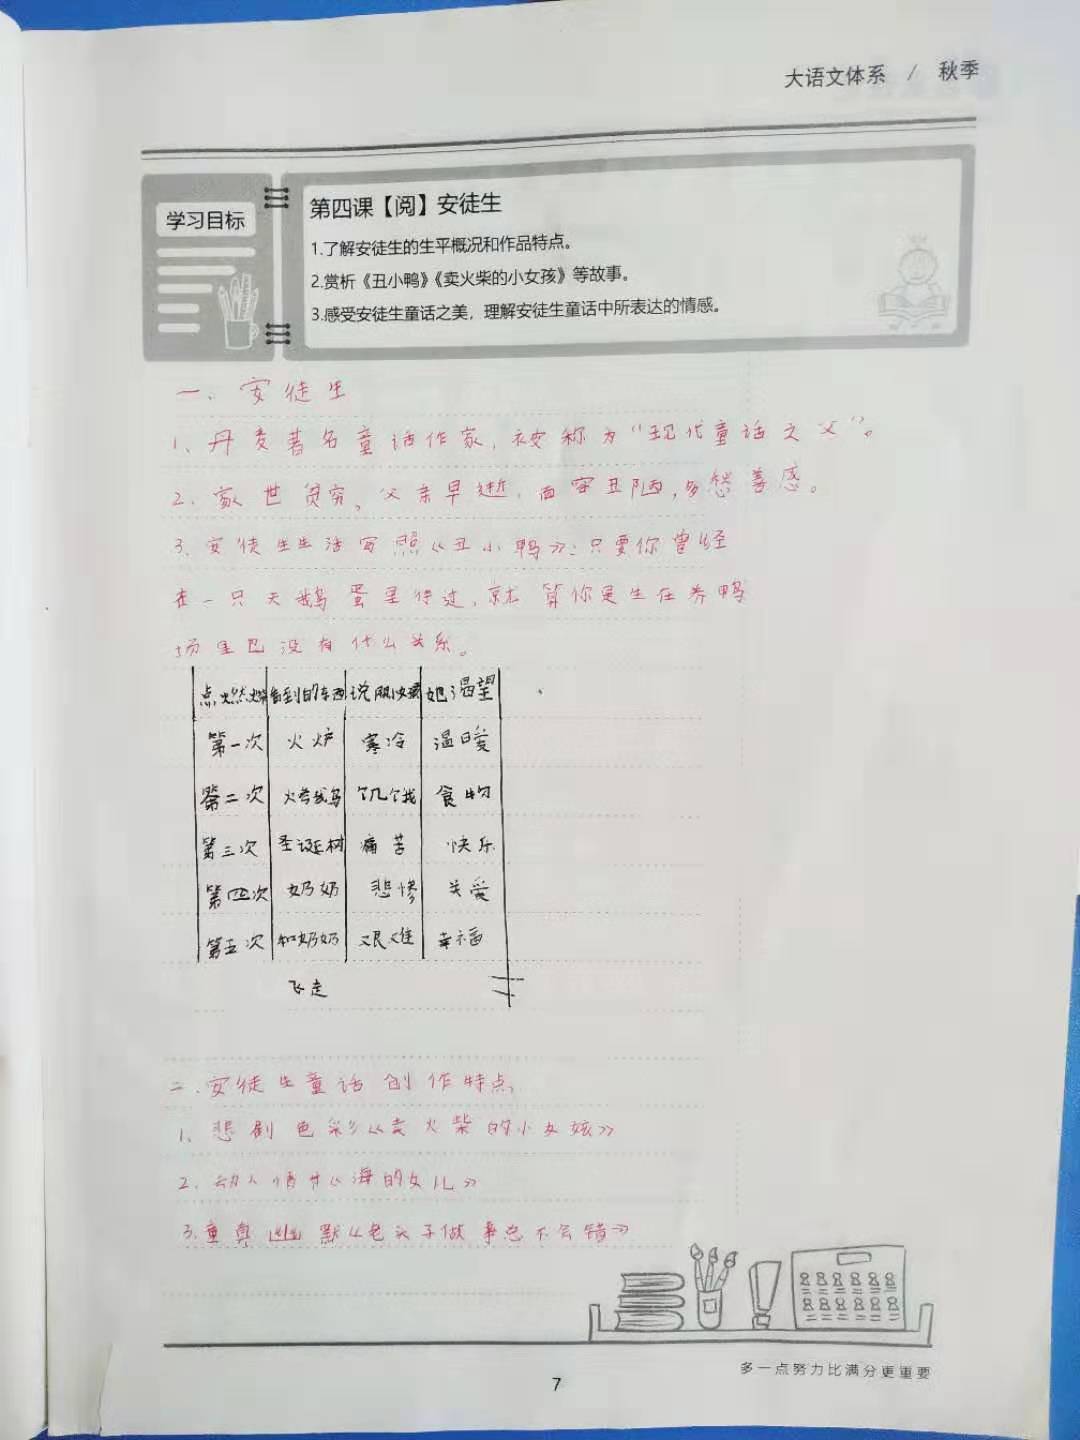 大语文体系 / 秋季
学习目标
第四课【阅】安徒生
1.了解安徒生的生平概况和作品特点。
2.赏析《丑小鸭》《卖火柴的小女孩》等故事。
3.感受安徒生童话之美，理解安徒生童话中所表达的情感。
一、安徒生
1、丹麦著名童话作家，被称为“现代童话之父”。
2、家世贫穷，父亲早逝，面容丑陋，多愁善感。
3、安徒生生活写照《丑小鸭》：只要你曾经
在一只天鹅蛋里待过，就算你是生在养鸭
场里也没有什么关系。
点燃火柴 看到的东西 说明小女孩 她渴望
第一次 火炉 寒冷 温暖
第二次 火烤鹅 饥饿 食物
第三次 圣诞树 痛苦 快乐
第四次 奶奶 悲惨 关爱
第五次 和奶奶 艰难 幸福
飞走
二、安徒生童话创作特点
1、悲剧色彩《卖火柴的小女孩》
2、动人情节《海的女儿》
3、童真幽默《老头子做事总不会错》
多一点努力比满分更重要
7